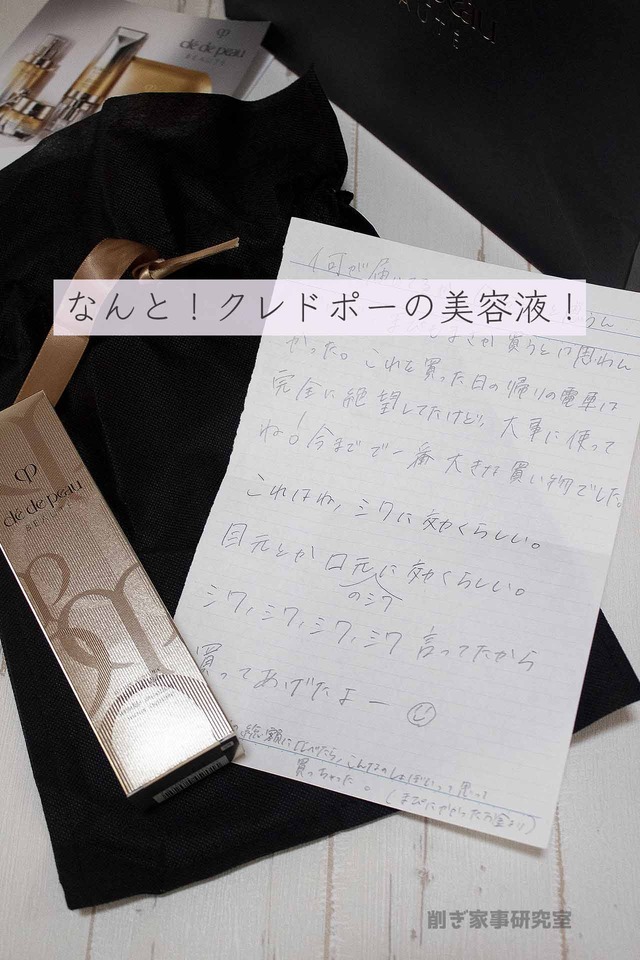 clé de peau
BEAUTÉ
peau
BEAUTÉ
なんと！クレドポーの美容液！
何が
買うとは思わん
かった。これを買った日の帰りの電車は
完全に絶望してたけど、大事に使って
ね！今までで一番大きな買い物でした。
これはね、シワに効くらしい。
目元とか口元に効くらしい。
のシワ
シワ、シワ、シワ、シワ 言ってたから
買ってあげたよー
総額に比べたら、こんなのしょぼいって思って
買っちゃった。
clé de peau
BEAUTÉ
削ぎ家事研究室